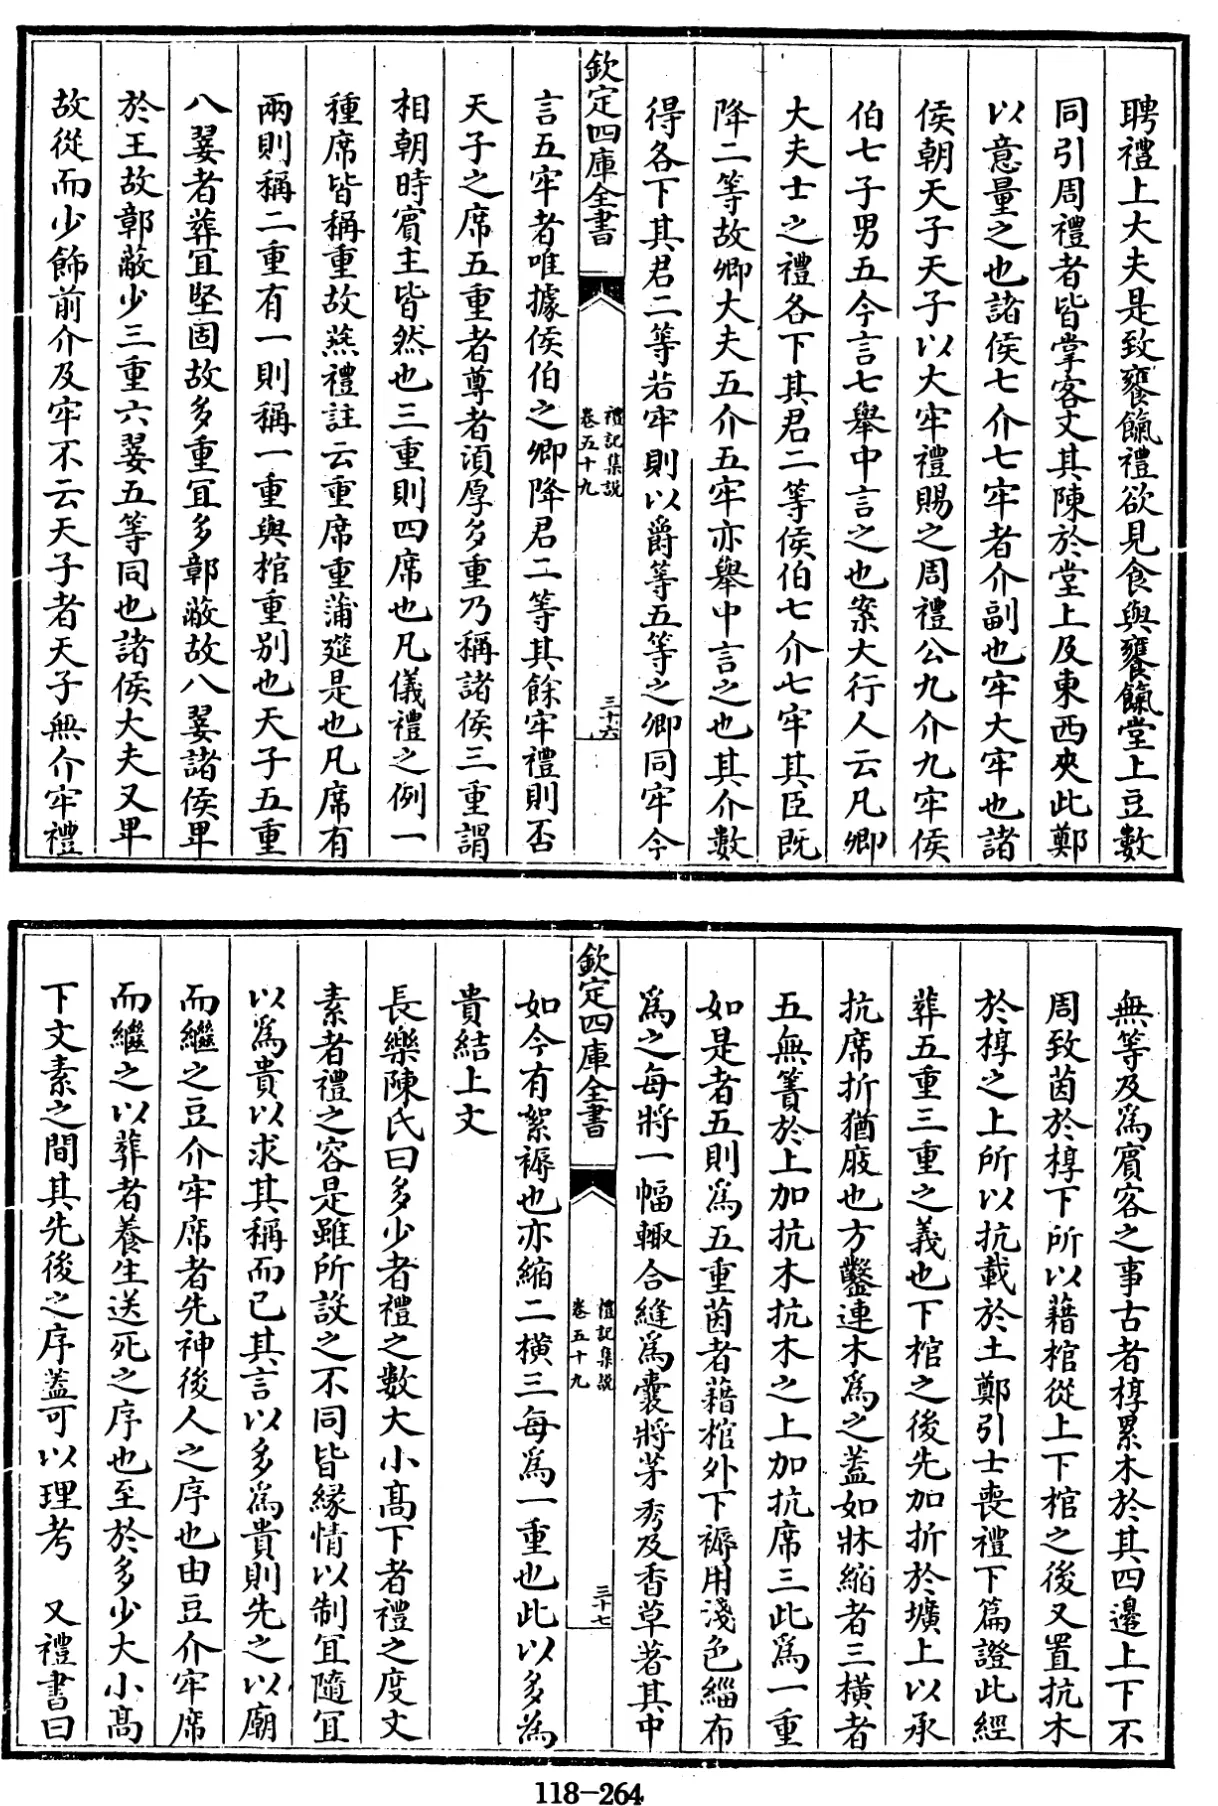 聘禮上大夫是致饔餼禮欲見食與饔餼堂上豆數
同引周禮者皆掌客文其陳於堂上及東西夾此鄭
以意量之也諸侯七介七牢者介副也牢大牢也諸
侯朝天子天子以大牢禮賜之周禮公九介九牢侯
伯七子男五今言七舉中言之也案大行人云凡卿
大夫士之禮各下其君二等侯伯七介七牢其臣既
降二等故卿大夫五介五牢亦舉中言之也其介數
得各下其君二等若牢則以爵等五等之卿同牢今
欽定四庫全書
禮記集説
卷五十九
三十六
言五牢者唯據侯伯之卿降君二等其餘牢禮則否
天子之席五重者尊者須厚多重乃稱諸侯三重謂
相朝時賓主皆然也三重則四席也凡儀禮之例一
種席皆稱重故燕禮註云重席重蒲筵是也凡席有
兩則稱二重有一則稱一重與棺重別也天子五重
八翣者葬宜堅固故多重宜多鄣蔽故八翣諸侯卑
於王故鄣蔽少三重六翣五等同也諸侯大夫又卑
故從而少飾前介及牢不云天子者天子無介牢禮
無等及爲賓客之事古者椁累木於其四邊上下不
周致茵於椁下所以藉棺從上下棺之後又置抗木
於椁之上所以抗載於土鄭引士喪禮下篇證此經
葬五重三重之義也下棺之後先加折於壙上以承
抗席折猶庪也方鑿連木爲之蓋如牀縮者三橫者
五無簀於上加抗木抗木之上加抗席三此爲一重
如是者五則爲五重茵者藉棺外下褥用淺色緇布
爲之每將一幅輙合縫爲囊將茅秀及香草著其中
欽定四庫全書
禮記集説
卷五十九
三十七
如今有絮褥也亦縮二橫三每爲一重也此以多為
貴結上文
長樂陳氏曰多少者禮之數大小髙下者禮之度文
素者禮之容是雖所設之不同皆緣情以制宜隨宜
以爲貴以求其稱而已其言以多爲貴則先之以廟
而繼之豆介牢席者先神後人之序也由豆介牢席
而繼之以葬者養生送死之序也至於多少大小髙
下文素之間其先後之序蓋可以理考　又禮書曰
118-264